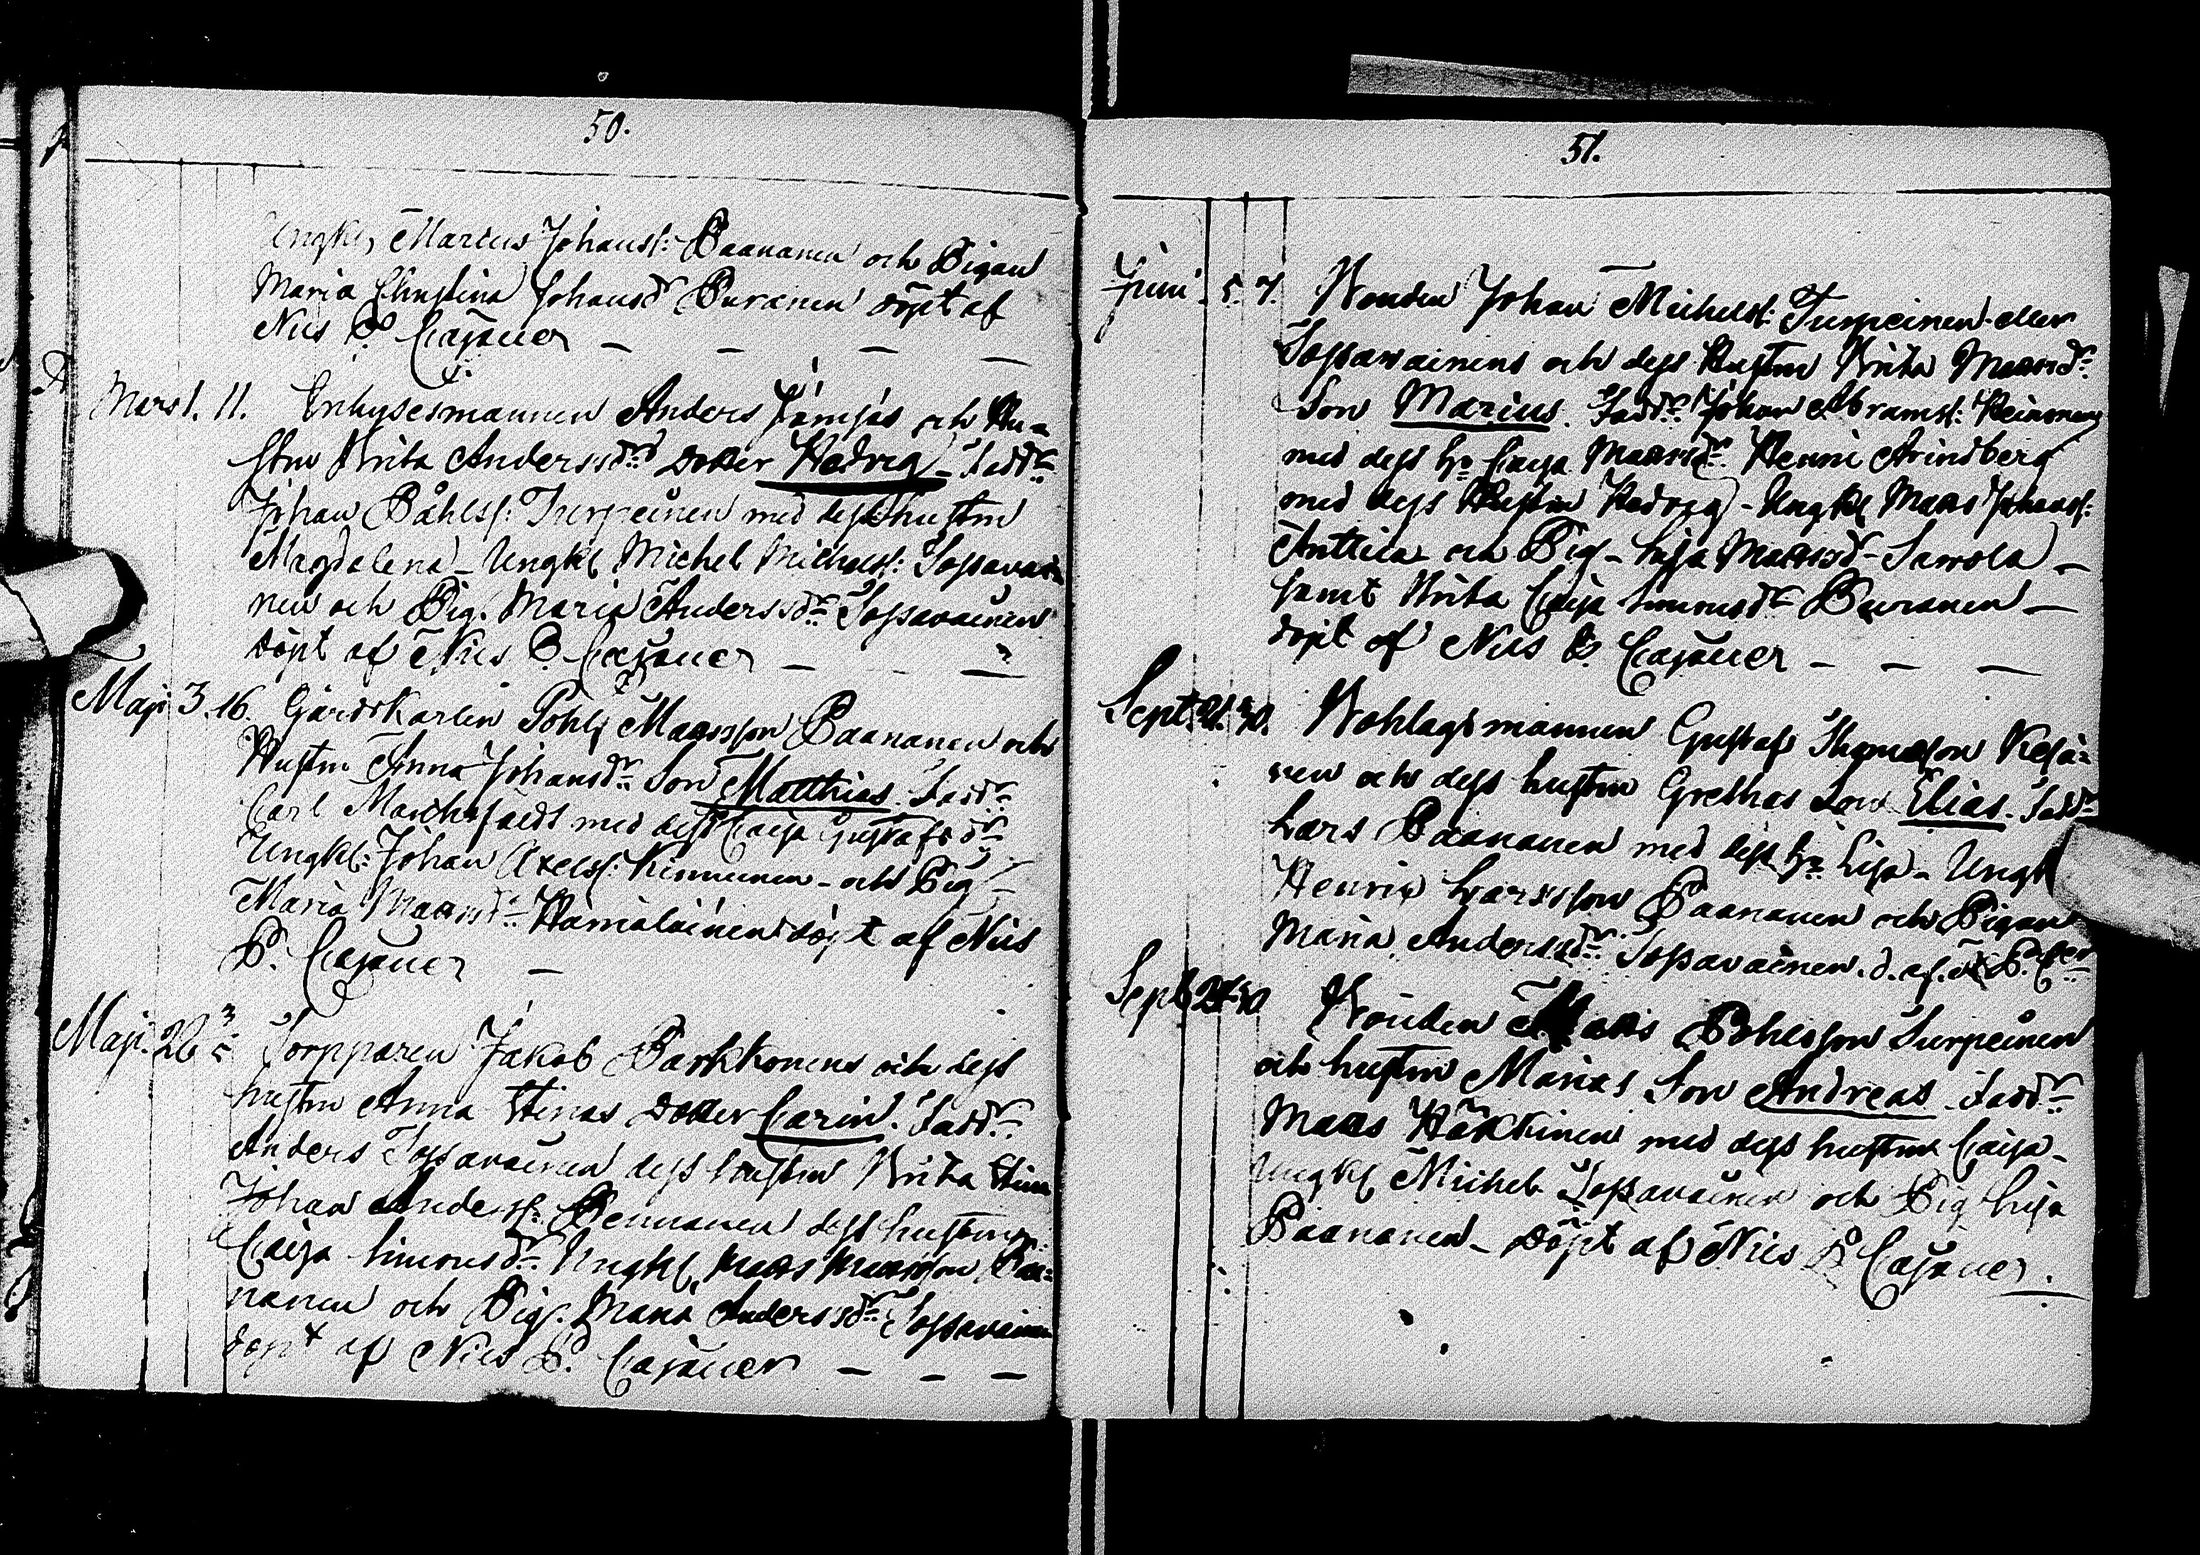 50.
Ungkl, Marcus Johanss: Paananen och Pigan
Maria Christina Johansdr Puranen döpt af
Nils P. Cajaner
Mars 1. 11. Inhysesmannen Anders Jämsäs och Hu=
stru Brita Anderssdrs dotter Hedvig. Faddr
Johan Påhlss: Turpeinen med dess hustru
Magdalena - Ungkl Michel Michelss: Sossavai
nen och Pig. Maria Anderssdr Sossavainen
döpt af Nils P. Cajaner
Maji 3. 16. Gårdskarlen Pohl Maansson Paananen och
Hustru Anna Johansdr Son Matthias. Faddr
Carl med dess Caisa Gustafsdr
Ungkl: Johan Axelss: Kinnunen - och Pig
Maria Maansdr Hämäläinen döpt af Nils
P. Cajaner
Maji. 26 3/5 Torpparen Jakob Parkkonens och dess
hustru Anna Stinas dotter Carin. Faddr
Anders Sossavainen dess hustru Brita Stina
Johan Anderss: Pennanen dess hustru
Caisa Simonsdr Ungkl Maans Maansson Paa=
nanen och Pig. Maria Anderssdr Sossavainen
döpt af Nils P. Cajaner
51.
Juni 5. 7. Bonden Johan Michelss: Turpeinen eller
Sossavainens och dess Hustru Brita Maansdr
Son Marius. Faddr Johan Abramss: Heinonen
med dess Ho Caisa Maansdr Henric Arindberg
med dess Hustru Hedvig - Ungkl Maans Johanss:
Anttila och Pig - Lisa Maansdr Savola
samt Brita Caisa Simonsdr Puranen
döpt af Nils P. Cajaner
Sept. 30. Bohlagsmannen Gustaf Thomasson Kesä=
nen och dess hustru Grethas Son Elias. Faddr
Lars Paananen med dess Ho Lisa - Ungk
Henrik Larsson Paananen och Pigan
Maria Anderssdr Sossavainen. d. af. P.
Sept 30 Bonden Maans Pohlsson Turpeinen
och hustru Marias Son Andreas. Faddr
Maans Häkkinen med dess hustru Caisa
Ungkl Michel Sossavainen och Pig Lisa
Paananen - döpt af Nils P. Cajaner.